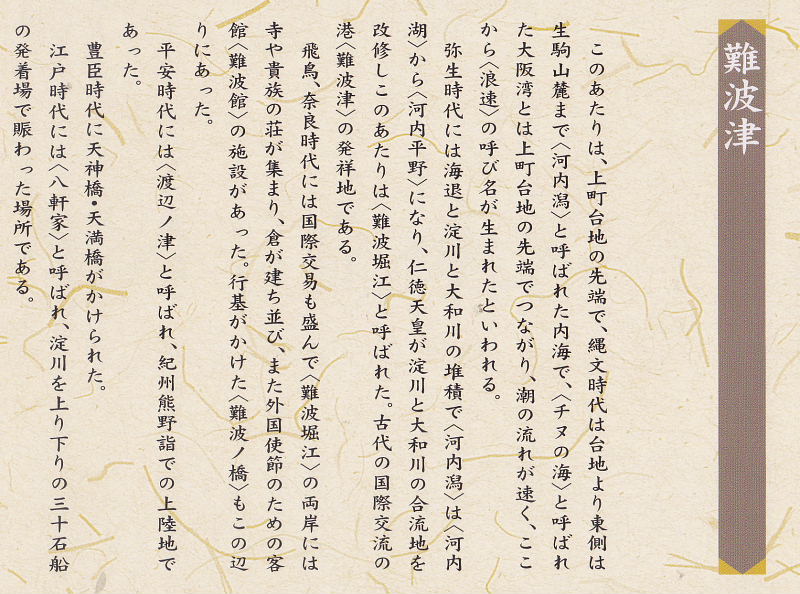 難波津
このあたりは、上町台地の先端で、縄文時代は台地より東側は
生駒山麓まで〈河内潟〉と呼ばれた内海で、〈チヌの海〉と呼ばれ
た大阪湾とは上町台地の先端でつながり、潮の流れが速く、ここ
から〈浪速〉の呼び名が生まれたといわれる。
弥生時代には海退と淀川と大和川の堆積で〈河内潟〉は〈河内
湖〉から〈河内平野〉になり、仁徳天皇が淀川と大和川の合流地を
改修しこのあたりは〈難波堀江〉と呼ばれた。古代の国際交流の
港〈難波津〉の発祥地である。
飛鳥、奈良時代には国際交易も盛んで〈難波堀江〉の両岸には
寺や貴族の荘が集まり、倉が建ち並び、また外国使節のための客
館〈難波館〉の施設があった。行基がかけた〈難波ノ橋〉もこの辺
りにあった。
平安時代には〈渡辺ノ津〉と呼ばれ、紀州熊野詣での上陸地で
あった。
豊臣時代に天神橋・天満橋がかけられた。
江戸時代には〈八軒家〉と呼ばれ、淀川を上り下りの三十石船
の発着場で賑わった場所である。